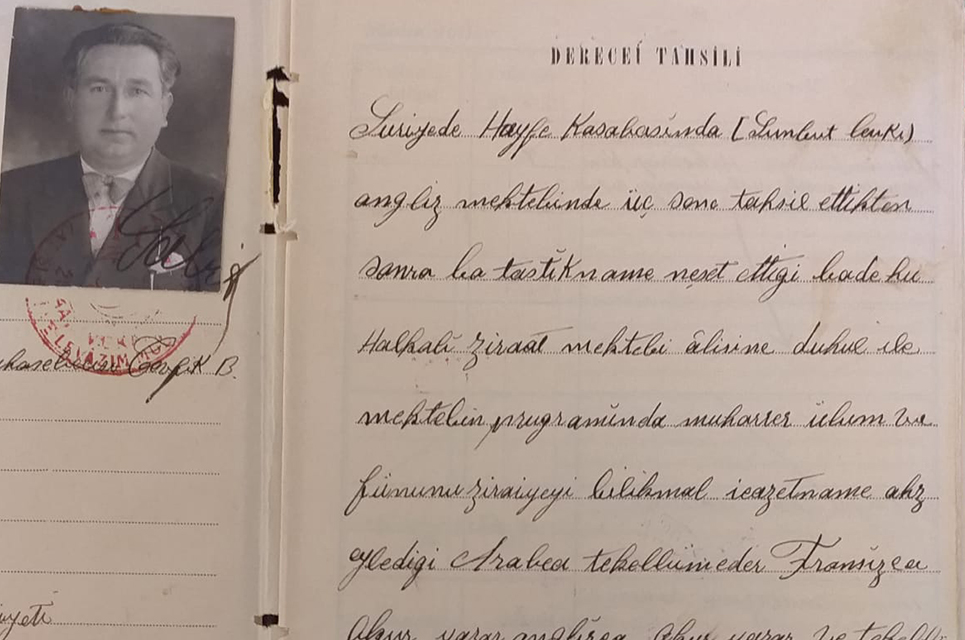 DERECEİ TAHSİLİ
Suriyede Hayfe Kasabasında (
angliz mektebinde üç sene tahsil ettikten
sonra ba tastikname neşet ettigi bade hu
Halkalı ziraat mektebi âlisine duhul ile
mektebin programında muharrer ülum ve
fünunu ziraiyeyi bilikmal icazetname ahz
eyledigi Arabca tekellümeder Fransızca
Okur yazar anglizca Okur yazar ve
LEVAZIM
B.